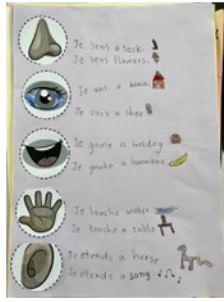 Je sens a sock.
Je sens flowers.
Je vois a house.
Je vois a
Je goute a hotdog
Je goute a bannana
Je touche water
Je touche a table
Je etends a horse
Je etends a song